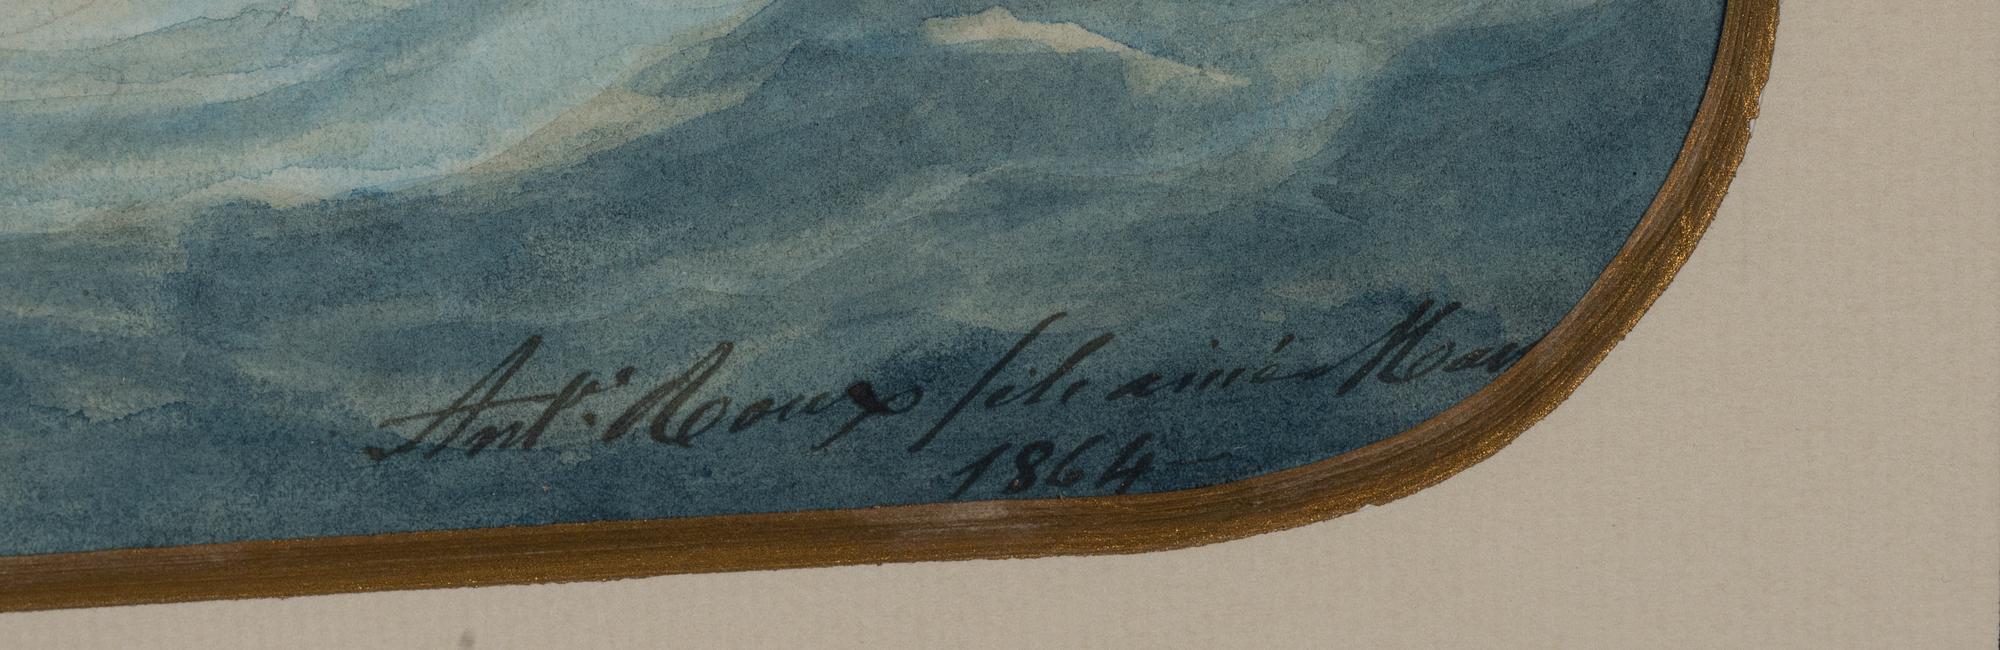 Ant.ne Roux fils ainé Mar
1864